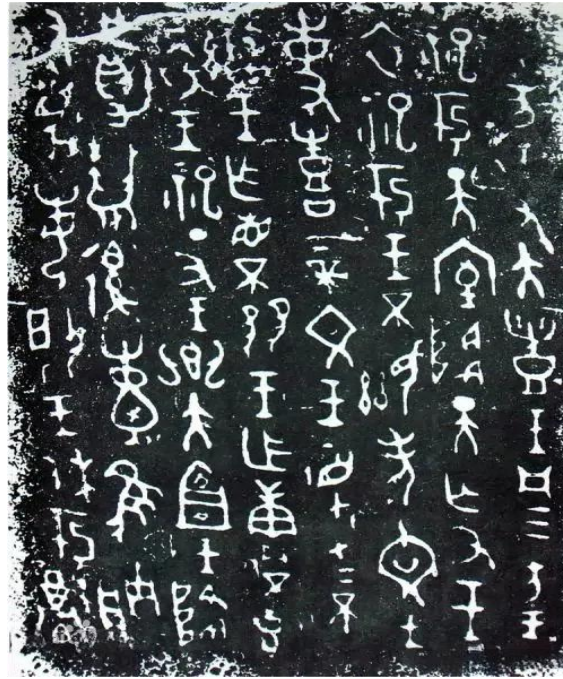 乙亥王又大豊王凡三方王
祀于天室降天亡又王
衣祀于王不顯考文王
事喜上帝文王監在上不
顯王乍省不王乍庚不克
气衣王祀丁丑王鄉大宜王降
亡爵復隹朕
又每揚王休于